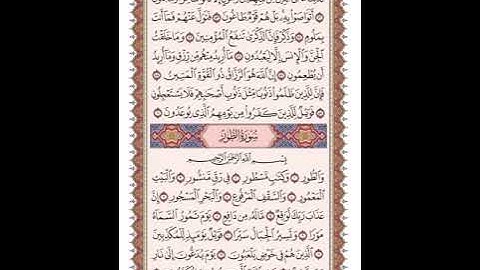 أَتَوَاصَوْا۟ بِهِۦ بَلْ هُمْ قَوْمٌ طَاغُونَ ۝ فَتَوَلَّ عَنْهُمْ فَمَآ أَنتَ
بِمَلُومٍ ۝ وَذَكِّرْ فَإِنَّ ٱلذِّكْرَىٰ تَنفَعُ ٱلْمُؤْمِنِينَ ۝ وَمَا خَلَقْتُ
ٱلْجِنَّ وَٱلْإِنسَ إِلَّا لِيَعْبُدُونِ ۝ مَآ أُرِيدُ مِنْهُم مِّن رِّزْقٍ وَمَآ أُرِيدُ
أَن يُطْعِمُونِ ۝ إِنَّ ٱللَّهَ هُوَ ٱلرَّزَّاقُ ذُو ٱلْقُوَّةِ ٱلْمَتِينُ ۝
فَإِنَّ لِلَّذِينَ ظَلَمُوا۟ ذَنُوبًا مِّثْلَ ذَنُوبِ أَصْحَٰبِهِمْ فَلَا يَسْتَعْجِلُونِ
۝ فَوَيْلٌ لِّلَّذِينَ كَفَرُوا۟ مِن يَوْمِهِمُ ٱلَّذِى يُوعَدُونَ ۝
سُورَةُ الطُّورِ
بِسْمِ ٱللَّهِ ٱلرَّحْمَٰنِ ٱلرَّحِيمِ
وَٱلطُّورِ ۝ وَكِتَٰبٍ مَّسْطُورٍ ۝ فِى رَقٍّ مَّنشُورٍ ۝ وَٱلْبَيْتِ
ٱلْمَعْمُورِ ۝ وَٱلسَّقْفِ ٱلْمَرْفُوعِ ۝ وَٱلْبَحْرِ ٱلْمَسْجُورِ ۝ إِنَّ
عَذَابَ رَبِّكَ لَوَٰقِعٌ ۝ مَّا لَهُۥ مِن دَافِعٍ ۝ يَوْمَ تَمُورُ ٱلسَّمَآءُ
مَوْرًا ۝ وَتَسِيرُ ٱلْجِبَالُ سَيْرًا ۝ فَوَيْلٌ يَوْمَئِذٍ لِّلْمُكَذِّبِينَ
۝ ٱلَّذِينَ هُمْ فِى خَوْضٍ يَلْعَبُونَ ۝ يَوْمَ يُدَعُّونَ إِلَىٰ نَارِ